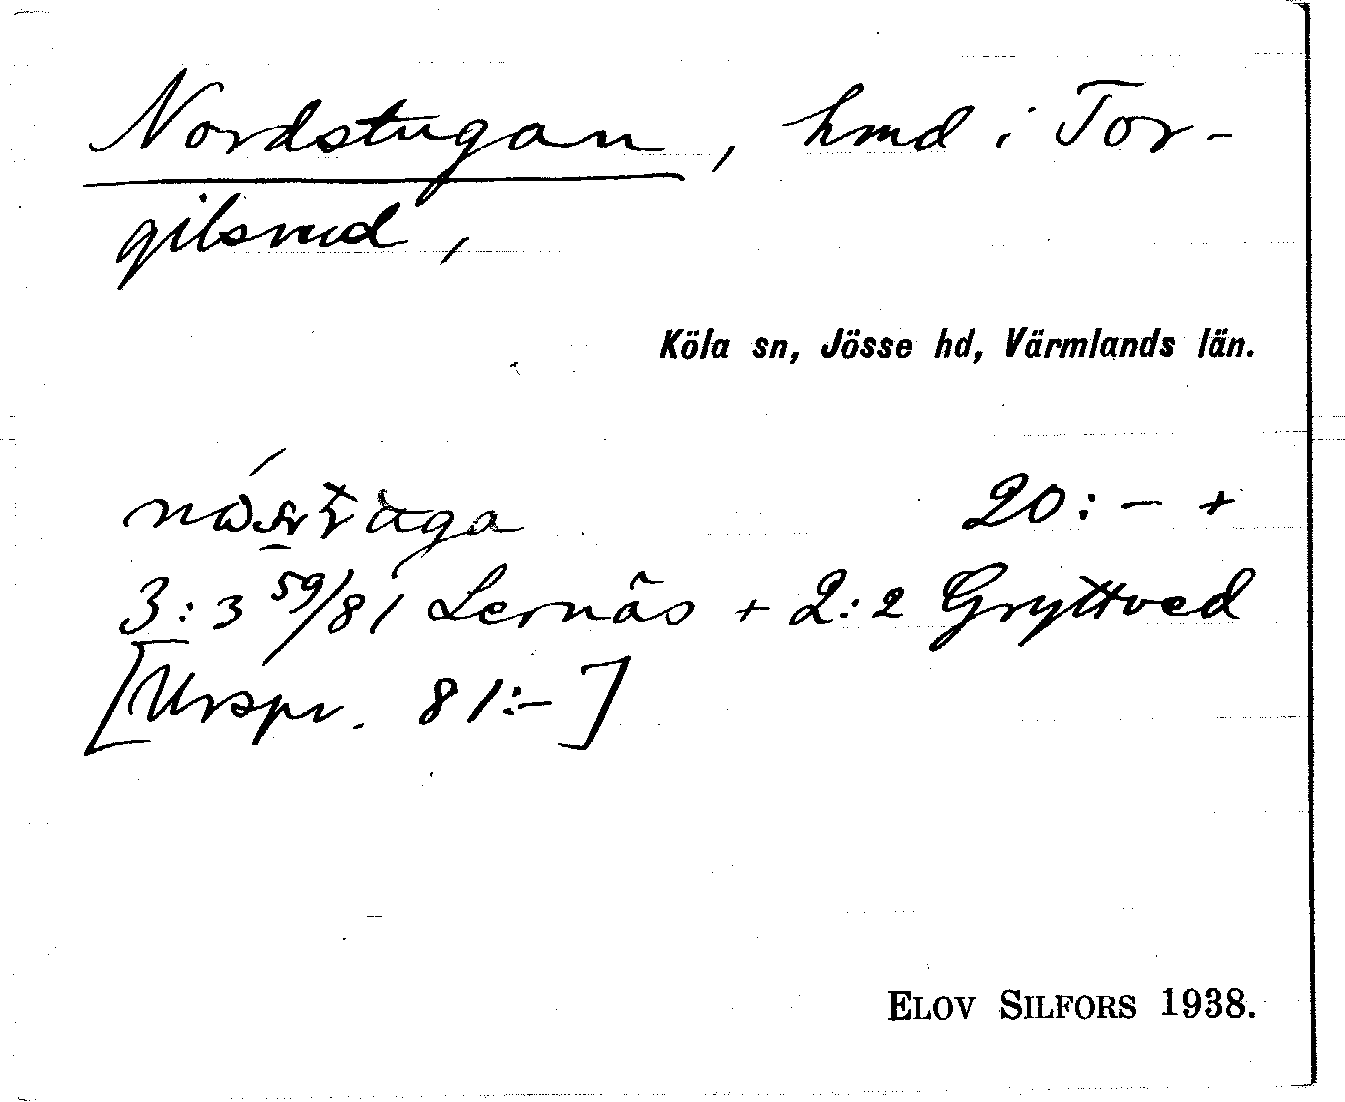 Nordstugan, hmd i Tor-
gilsrud,
Köla sn, Jösse hd, Värmlands län.
20:- +
3:3 59/81 Lernäs + 2:2 Gryttved
[Urspr. 81:-]
ELOV SILFORS 1938.